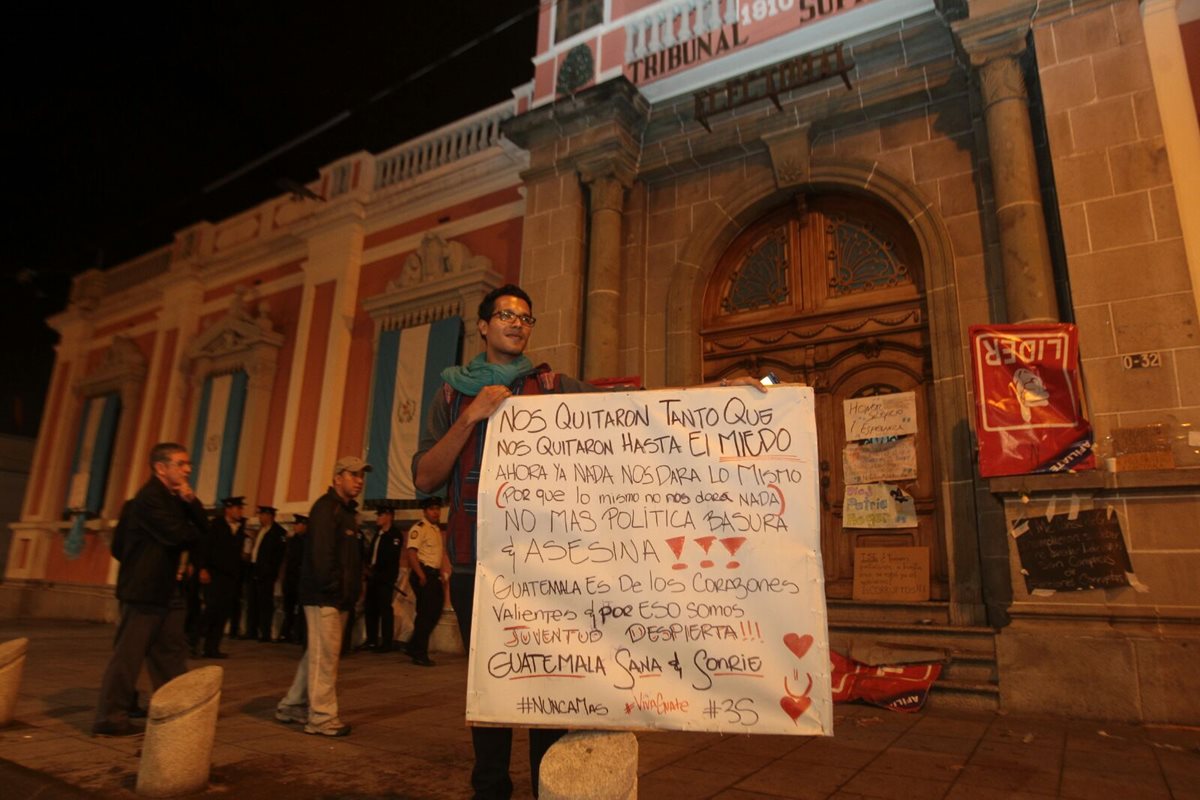 1810
SUP
TRIBUNAL
ELECTORAL
NOS QUITARON TANTO QUE
NOS QUITARON HASTA El MIEDO
AHORA YA NADA NOS DARA LO MISMO
(POR QUE LO MISMO NO NOS DARA NADA)
NO MAS POLÍTICA BASURA
& ASESINA !!!
GUATEMALA ES DE LOS CORAZONES
Valientes & POR ESO SOMOS
JUVENTUD DESPIERTA!!!
GUATEMALA SANA & SONRIE
#NUNCAMAS #VIVAGuate #3S
LIDER
AFILIATE
0-32
AFILIATE